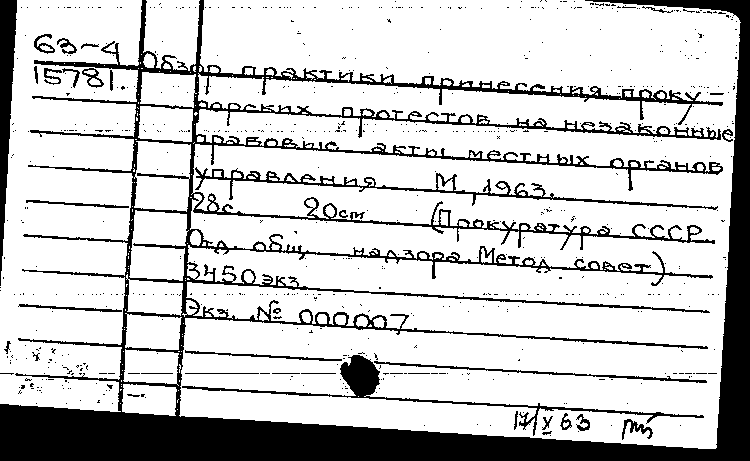 63-4 Обзор практики принесения проку-
15781.
рорских протестов на незаконные
правовые акты местных органов
управления. М., 1963.
28с. 20см (Прокуратура СССР.
Отд. общ. надзора. Метод. совет)
3450 экз.
Экз. № 000007.
17/X 63